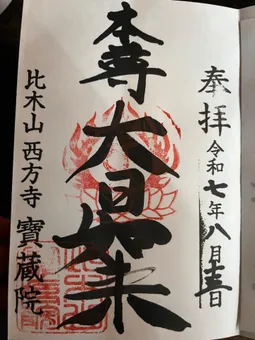 奉拝 令和七年八月十三日
本尊 大日如来
比木山 西方寺 寶蔵院